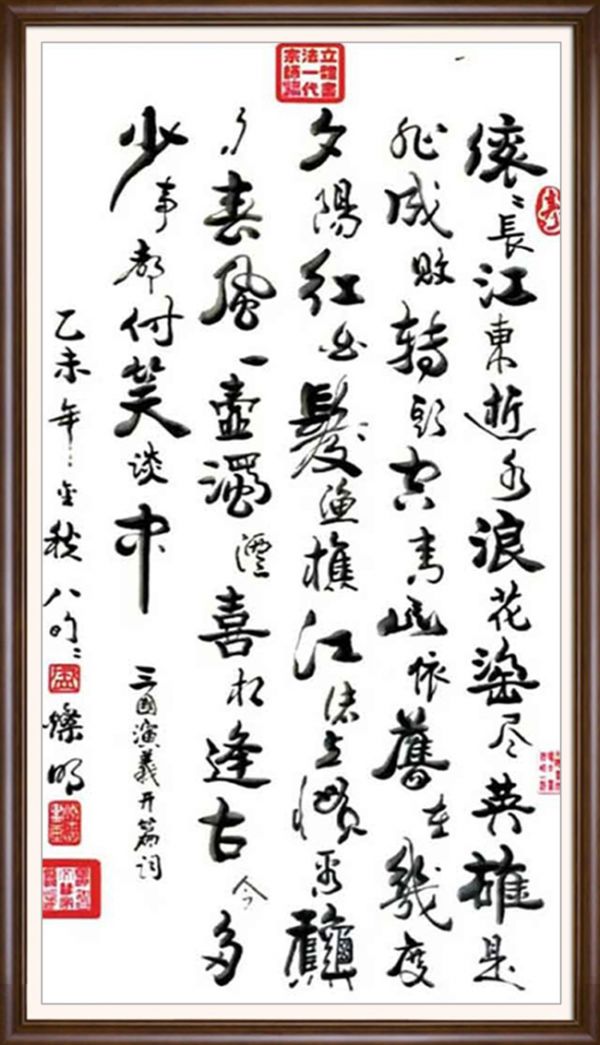 立體書法一代宗師
滚〻長江東逝水浪花淘尽英雄是
非成败轉头空青山依舊在幾度
夕陽红白髮渔樵江渚上惯看龝
月春風一壺濁酒喜相逢古今多
少事都付笑谈中
三國演義开篇词
乙未年金秋八
燦明